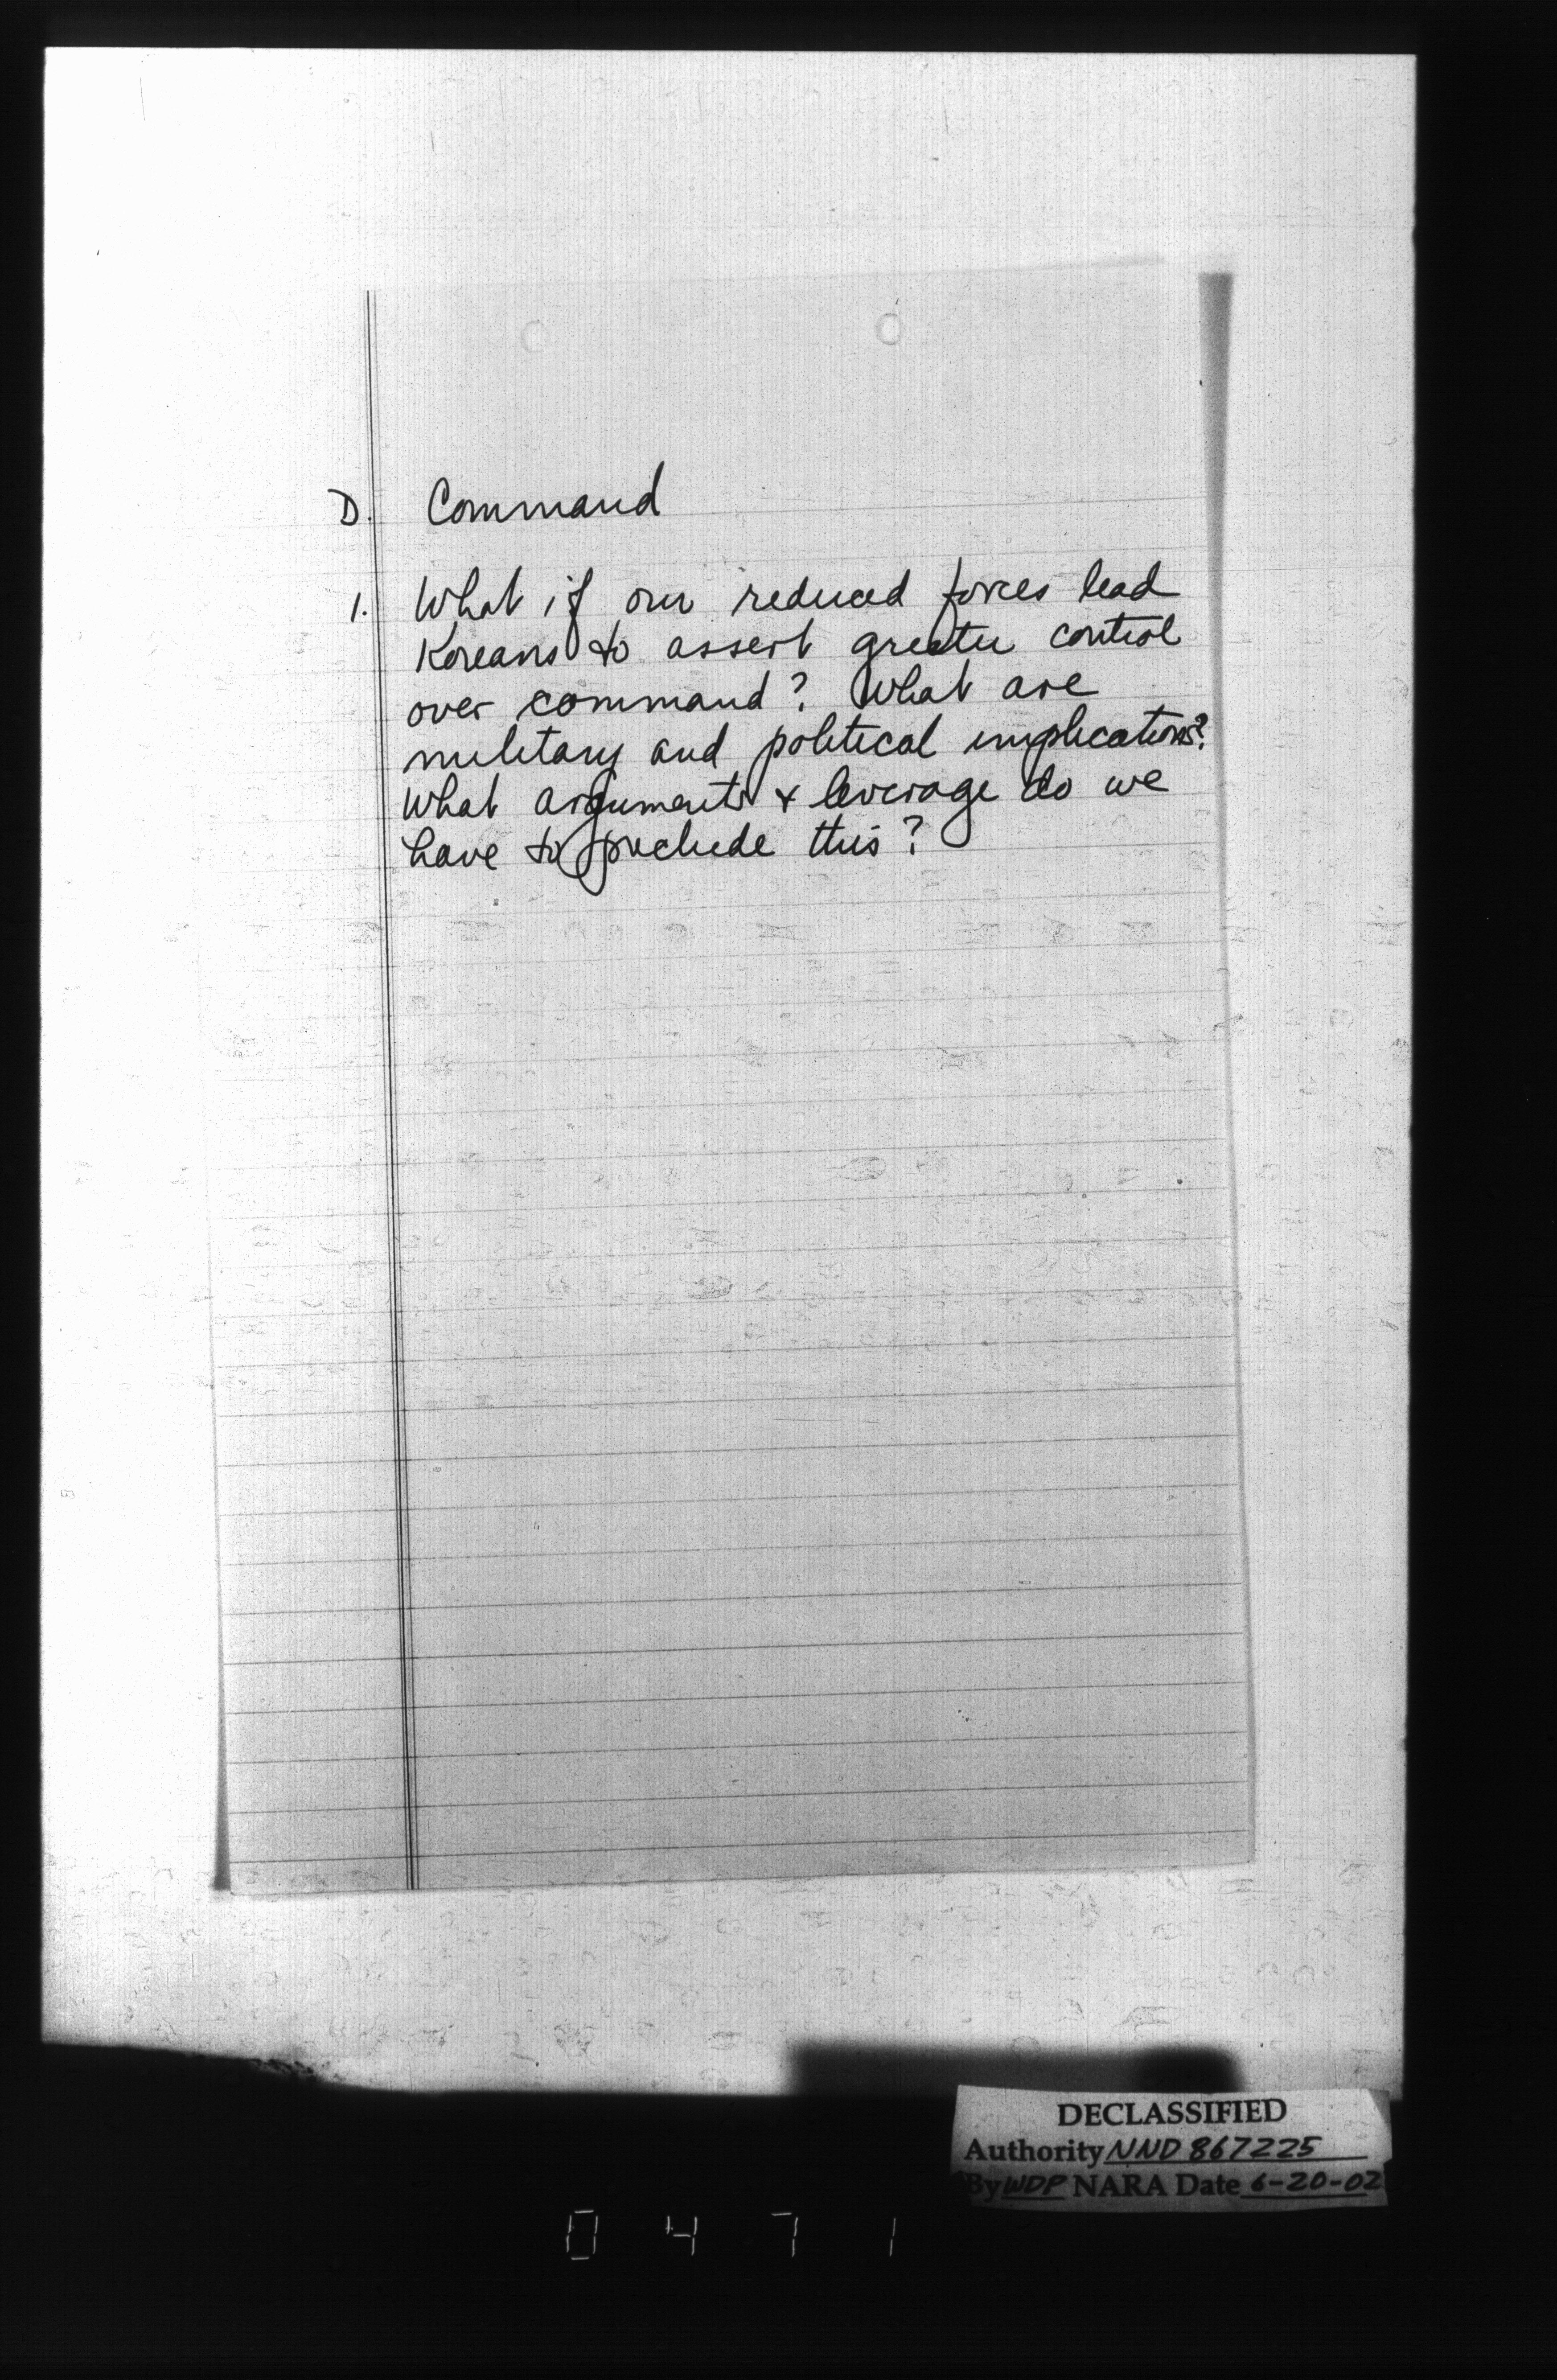 D. Command
1. What if our reduced forces lead
Koreans to assert greater control
over command? What are
military and political implications?
What arguments & leverage do we
have to preclude this?
DECLASSIFIED
Authority NND 867225
By WDP NARA Date 6-20-02
0471